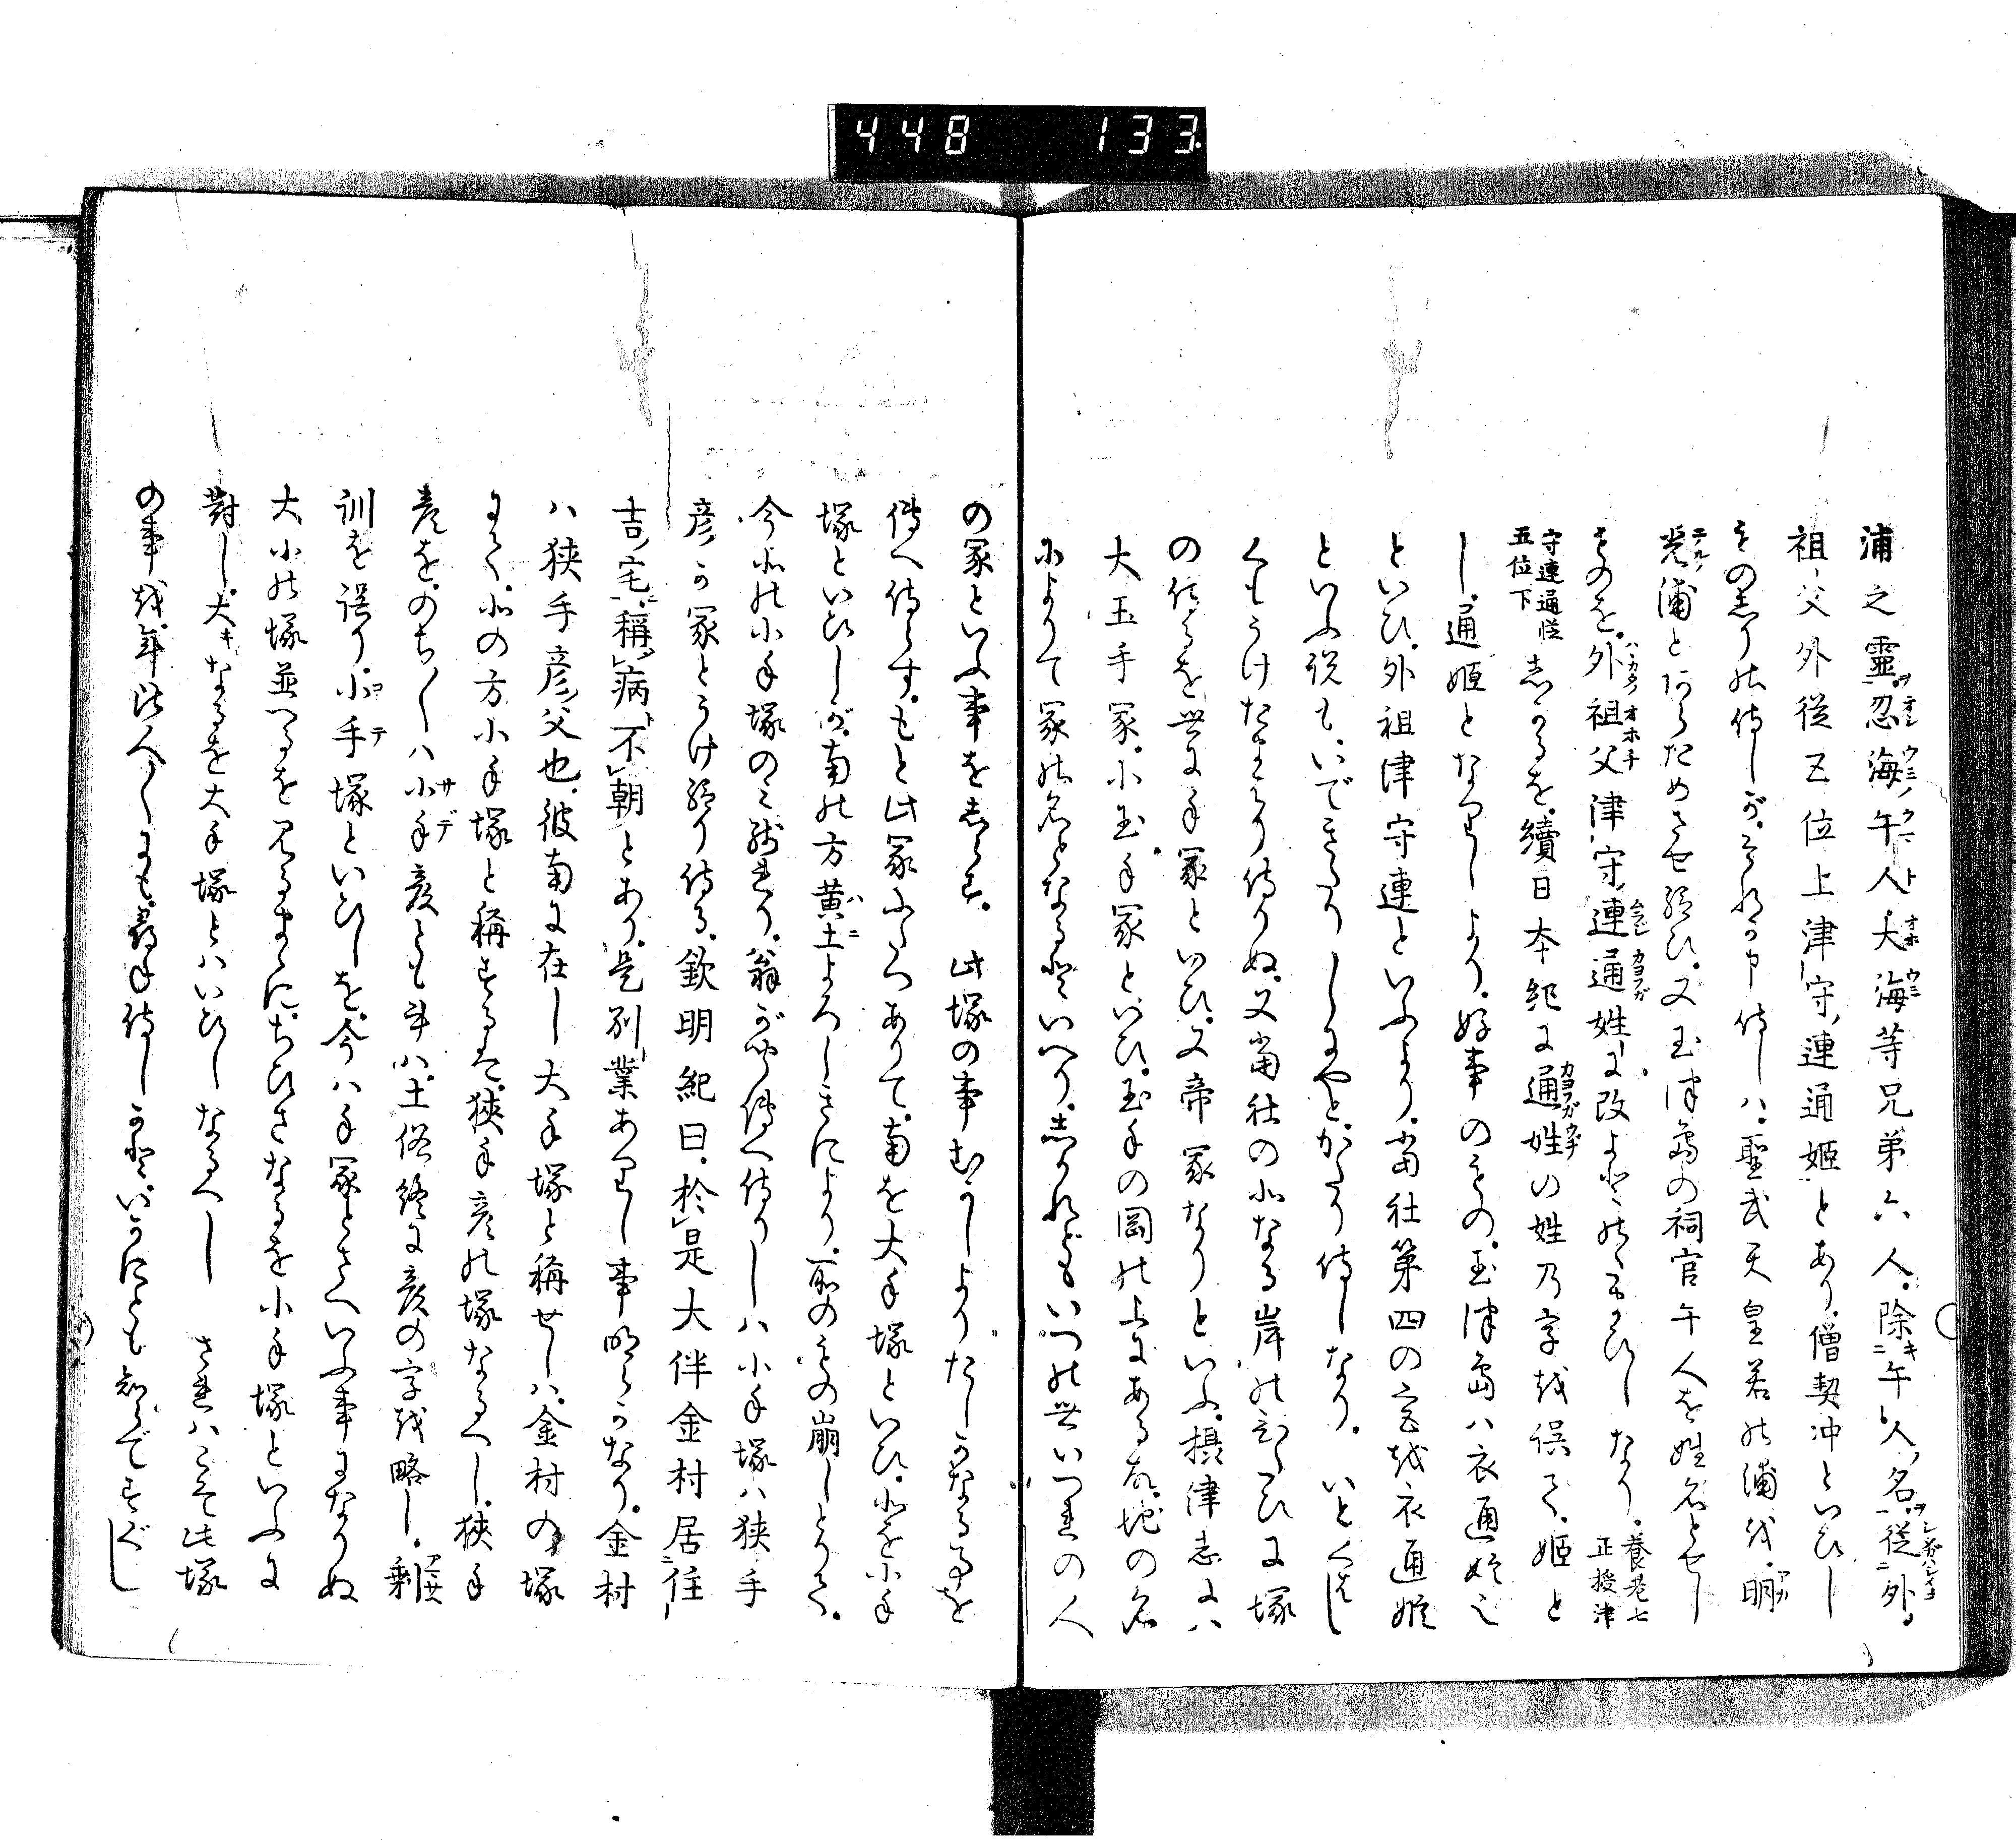 448　133
浦之靈忍海午人大海等兄弟六人。除午人名。從外
祖父外從五位上津守連通姫とあり。僧契冲といひし
ものゝしり侍しが。それか申侍しハ。聖武天皇若の浦を。明
光浦とあらためさせ給ひ。又玉津島の祠官午人を姓名とせし
ものを。外祖父津守連通姓に改よとのたまひしなり。養老七正授津
守連通従五位下しかるを。續日本紀に通姓の姓の字を誤て。姫と
し。通姫となせしより。好事のもの。玉津島ハ衣通姫を
といひ。外祖津守連といふより。當社第四の宮を衣通姫
といふ説も。いできたりしにやと。かたり侍しなり。いとくはし
くもうけたまはり侍りぬ。又當社の北なる岸のむかひに塚
の侍るを世に手冢といひ。又帝冢なりといふ。摂津志にハ
大玉手冢。小玉手冢といひ。玉手の岡の上にある故。地の名
によりて冢の名となるといへり。しかれどもいつの世いつれの人
の冢といふ事をしらす。此塚の事むかしよりたしかなる事を
傳へ侍らす。もと此冢ふたつありて。南を大手塚といひ。北を小手
塚といひしが。南の方黄土よろしきにより。所のもの崩しとりて。
今北の小手塚のみ残れり。翁が聞傳へ侍りしハ小手塚ハ狭手
彦か冢とうけ給り侍る。欽明紀曰。於是大伴金村居住
吉宅。稱病不朝とあり。是別業ありし事明らかなり。金村
ハ狭手彦父也。彼南に在し大手塚と稱せしハ。金村の塚
にて。北の方小手塚と稱するは。狭手彦の塚なるへし。狭手
彦を。のち〳〵ハ小手彦とも書ハ。土俗終に彦の字を略し。剰
訓を誤り。小手塚といひしを。今ハ手冢とさへいふ事になりぬ
大小の塚並へるを見るまゝに。ちひさなるを小手塚といふに
對し。大なるを大手塚とハいひしなるへし　されハこそ此塚
の事を。年比人〳〵にも。尋侍しかと。いかにとも知らですぐし